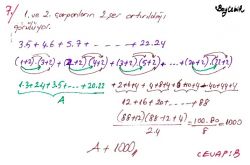 7) 1. ve 2. çarpanların 2 şer artırıldığı
görülüyor.
3.5 + 4.6 + 5.7 + ---- + 22.24
(1+2).(3+2) + (2+2)(4+2) + (3+2)(5+2) ... (20+2)(22+2)
1.3 + 2.4 + 3.5 + ---- + 20.22
A
12 + 16 + 20 + ---- + 88
(88+12)(88-12+4) / 2.4 = 100.80 / 8 = 1000
A + 1000
CEVAP: B